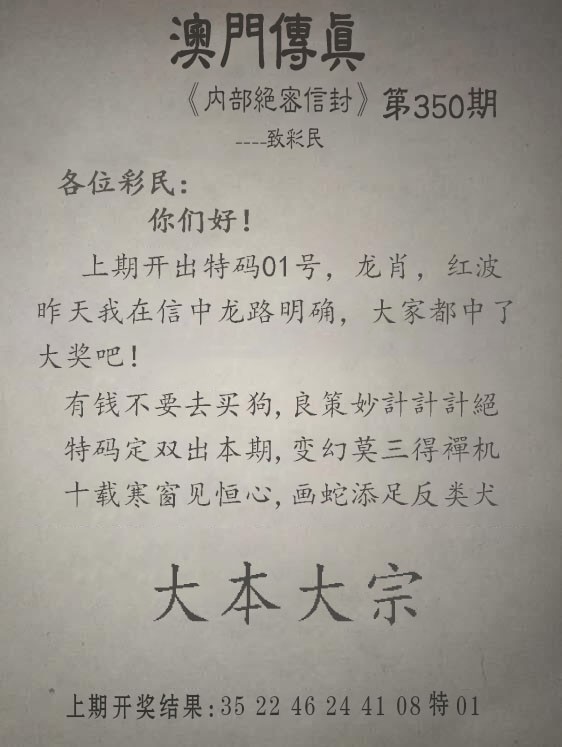 澳門傳眞
《内部絕密信封》第350期
----致彩民
各位彩民:
你们好!
上期开出特码01号，龙肖，红波
昨天我在信中龙路明确，大家都中了
大奖吧!
有钱不要去买狗,良策妙計計計絕
特码定双出本期,变幻莫三得禪机
十载寒窗见恒心,画蛇添足反类犬
大本大宗
上期开奖结果:35 22 46 24 41 08 特 01